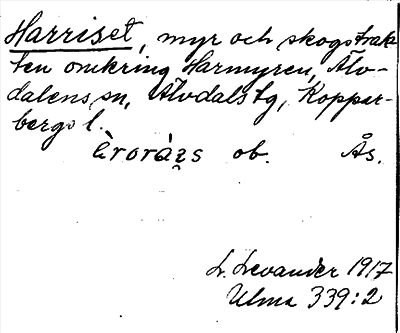 Harriset, myr och skogstrak-
ten omkring Harmyren, Älv-
dalens sn, Älvdals tg, Koppar-
bergs l.
ob. Ås.
L. Levander 1917
Ulma 339:2